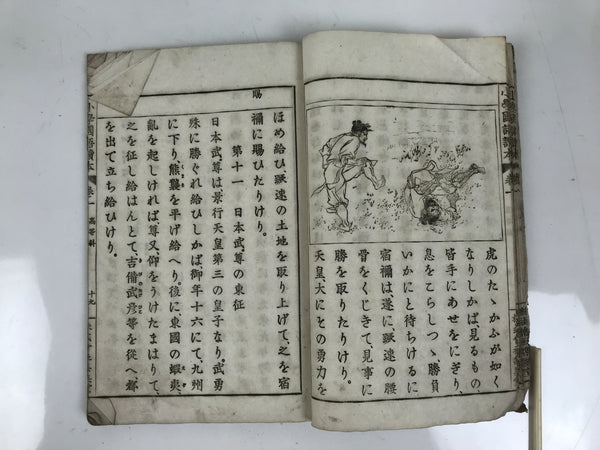 虎のたゝかふが如く
なりしかば、見るもの、
皆手にあせをにぎり、
息をこらしつゝ、勝負
いかにと待ちけるに、
宿禰は、遂に、蹶速の腰
骨をくじきて、見事に
勝を取りたりけり。
天皇、大にその勇力を
賜
ほめ給ひ、蹶速の土地を取り上げて、之を宿
禰に賜ひたりけり。
第十一 日本武尊の東征
日本武尊は景行天皇第三の皇子なり。武勇
殊に勝ぐれ給ひしかば、御年十六にて、九州
に下り熊襲を平げ給へり。後に東國の蝦夷、
亂を起しければ、尊又仰をうけたまはりて、
之を征し給はんとて、吉備武彦等を從へ、都
を出て立ち給ひけり。
小學國語讀本 卷一 高等科 十九